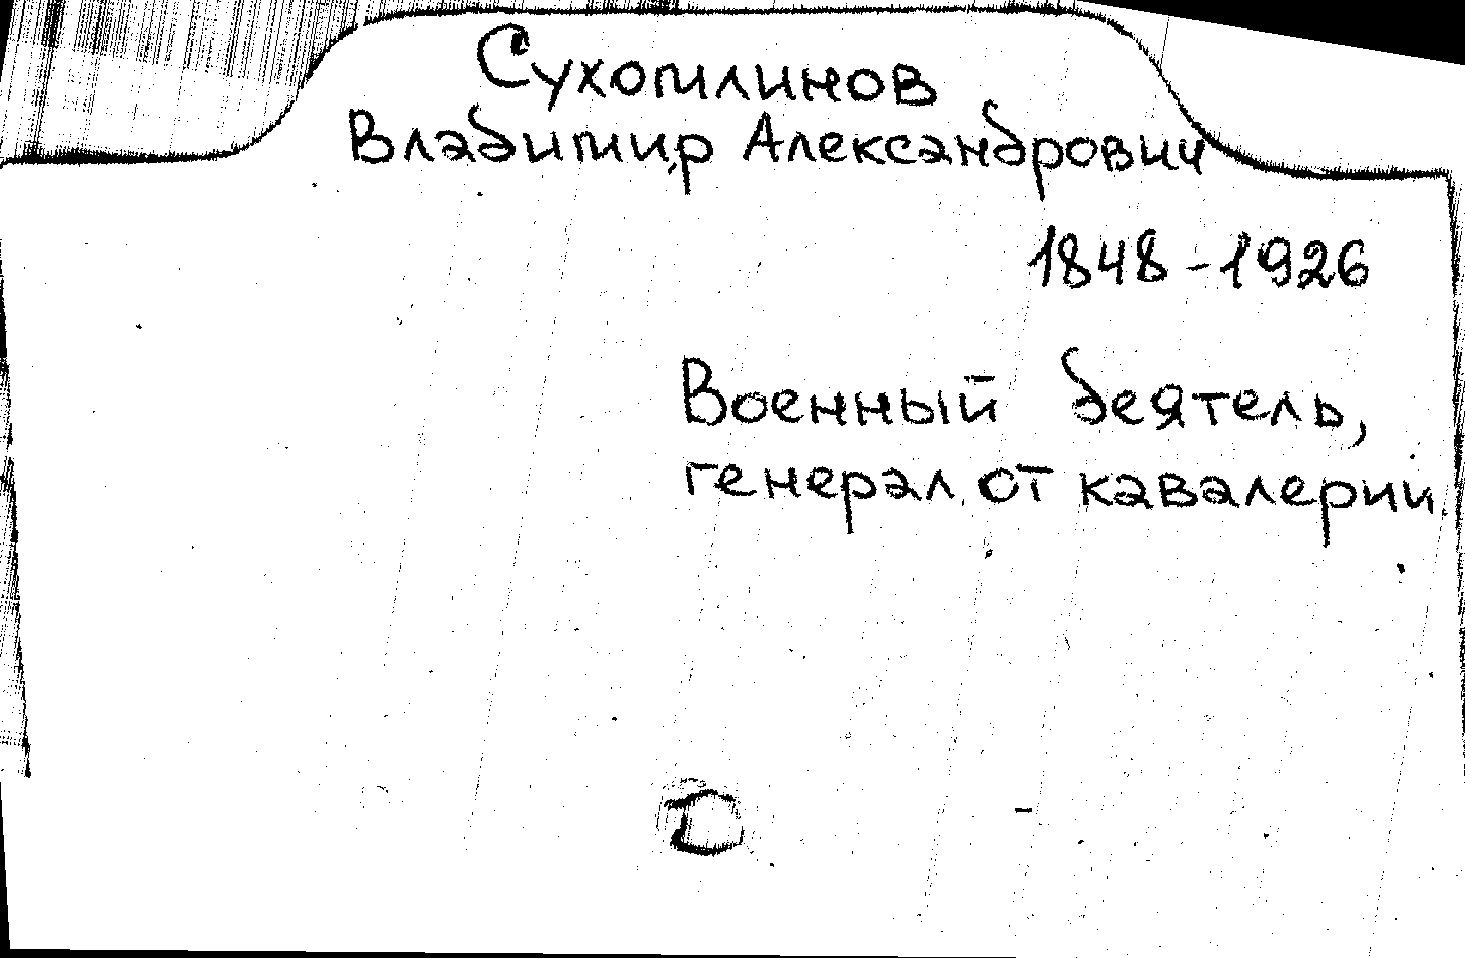 Сухомлинов
Владимир Александрович
1848-1926
Военный деятель,
генерал от кавалерии